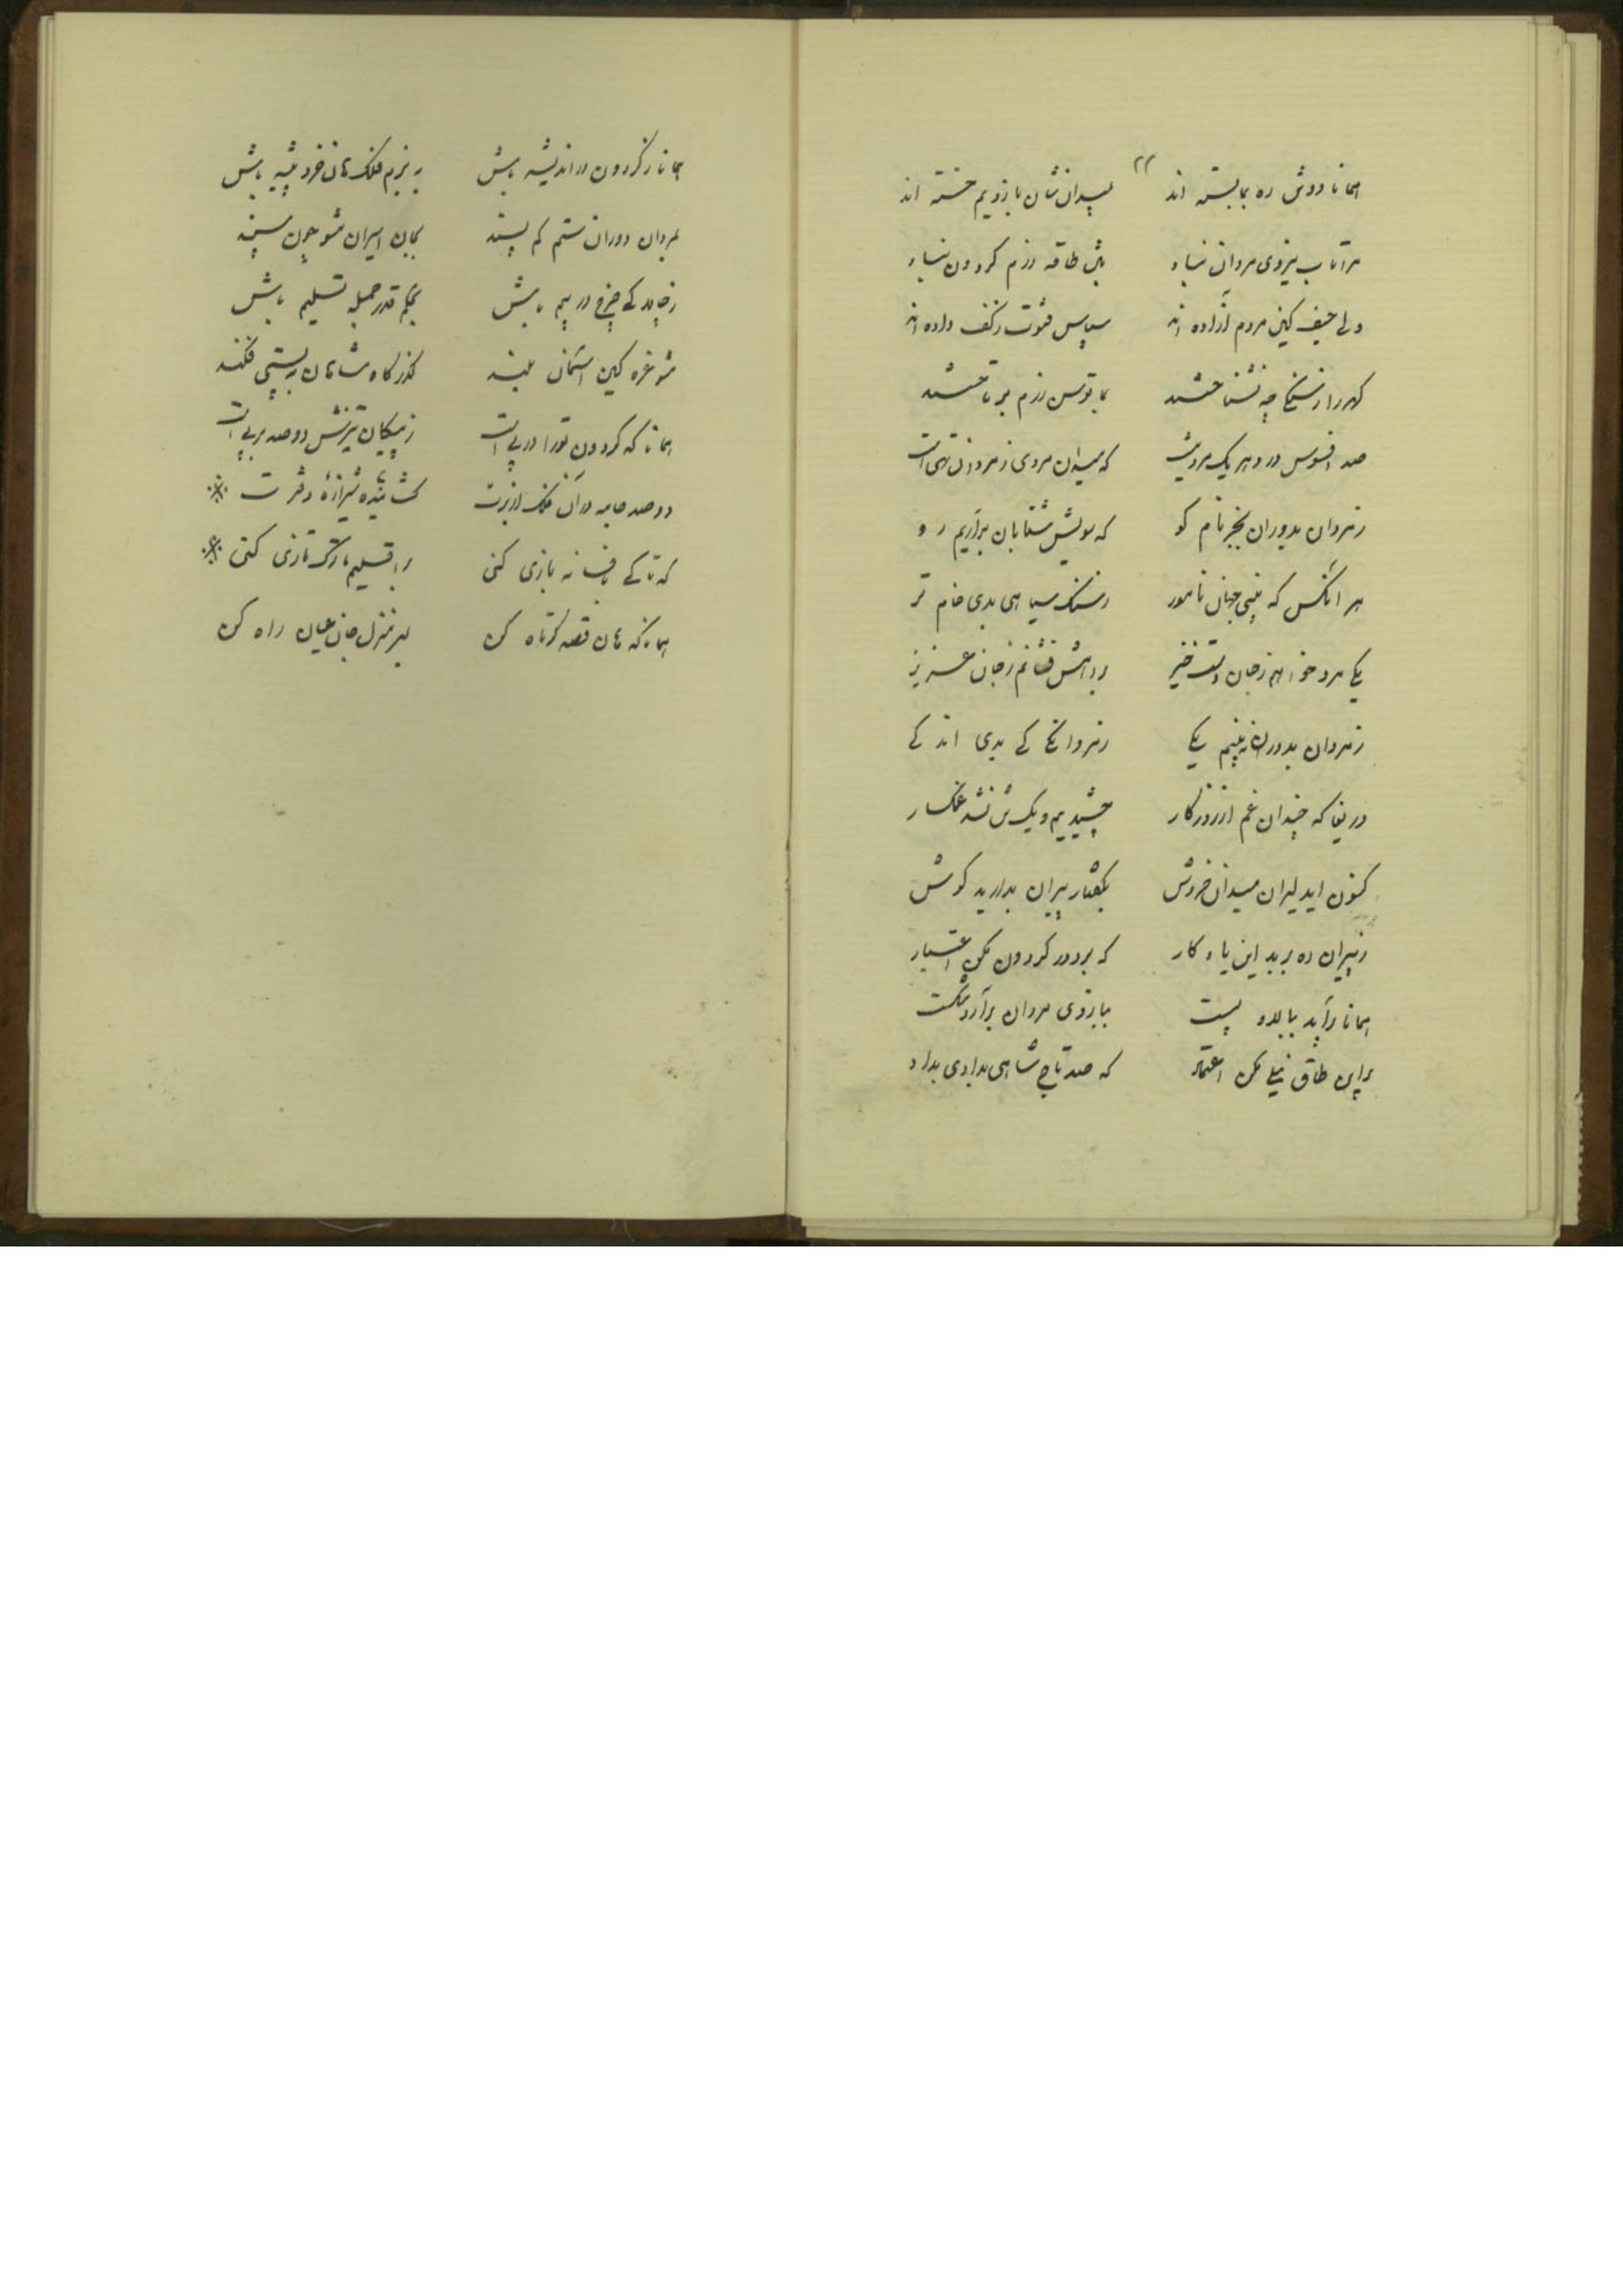 همانا دوش ره بما بسته اند بمیدان نشان بازویم خسته اند
مرا تاب نیروی مردان نباد بتن طاقه رزم کردون نباد
ولی حیف کین مردم آزاده اند سپاس فتوت زکف داده اند
کهر را ز سنک چه نشناختند بما توسن رزم برتاختند
صد افسوس در دهر یک مرد نیست که میدان مردی ز مردان تهی است
ز مردان بدوران بجز نام کو که سویش شتابان براریم رو
هر آنکس که بینی جهان نامور ز سنک سیاهی بدی خام تر
یکی مرد خواهم ز جان دست خیز براهش فشانم ز جان عزیز
ز مردان بدوران نه بینم یکی ز مردانکی بدی اندکی
دریغا که چندان غم از روزکار چشیدیم و یک تن نشد غمکسار
کنون ای دلیران میدان خروش بکفتار پیران بدارید کوش
ز پیران ره برید این یادکار که بر دور کردون مکن اعتبار
همانا برآید ببالا و پست ببازوی مردان برآرد شکست
براین طاق نیلی مکن اعتماد که صد تاج شاهی بدادی بداد
همانا ز کردون در اندیشه باش به بزم فلک هان خرد پیشه باش
بمردان دوران ستم کم پسند بجان اسیران مشو چون سپند
ز چرخ در بیم باش بحکم قدر جمله تسلیم باش
مشو غره کین آسمان بلند کذرکاه شاهان به پستی فکند
همانا که کردون تو را در پی است ز پیکان تیرش دو صد بر پی است
دو صد جامه در آن فلک از برت کشاینده شیرازه دفترت
که تا کی بافسانه بازی کنی بر اقلیم ترک تازی کنی
همانا که هان قصه کوتاه کن بسر منزل جان عیان راه کن